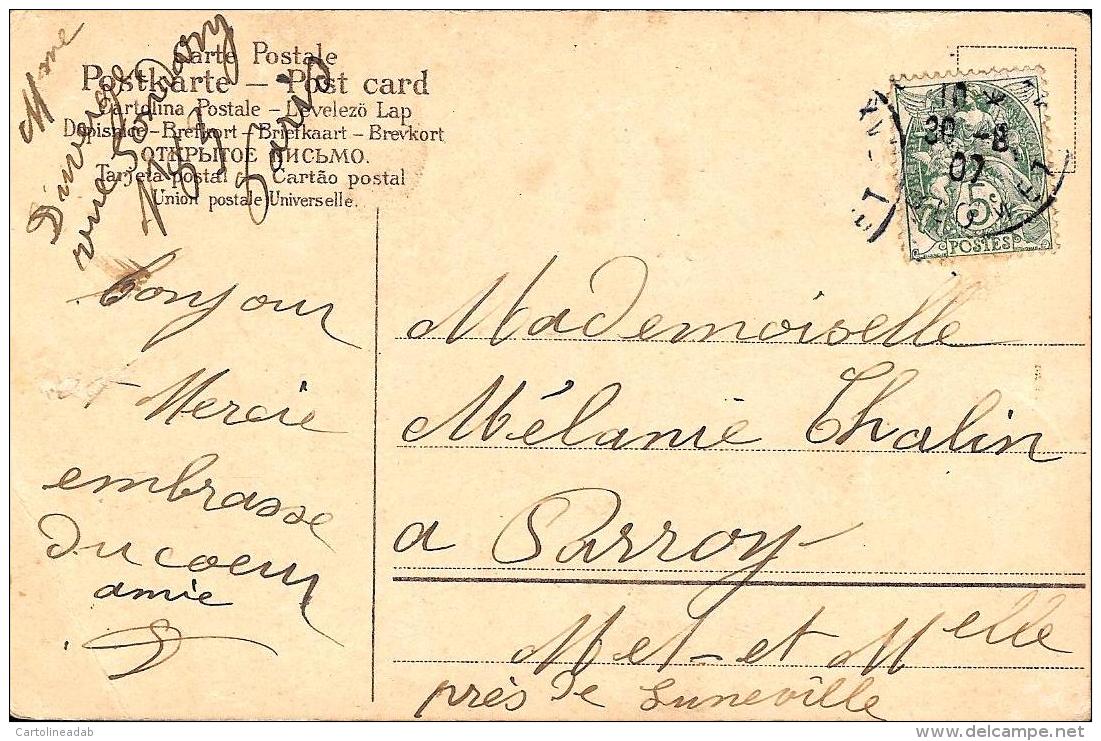 Carte Postale
Postkarte – Post card
Cartolina Postale – Levelező Lap
Dopisnice – Brefkort – Briefkaart – Brevkort
ОТКРЫТОЕ ПИСЬМО.
Tarjeta postal – Cartão postal
Union postale Universelle.
Mme
rue
Paris
10
30 -8
07
5
POSTES
bonjour
et Mercie
embrasse
Du coeur
amie
Mademoiselle
Mélanie Thalin
a Parroy
Met-et Melle
près de Luneville
Cartolineadab
delcampe.net